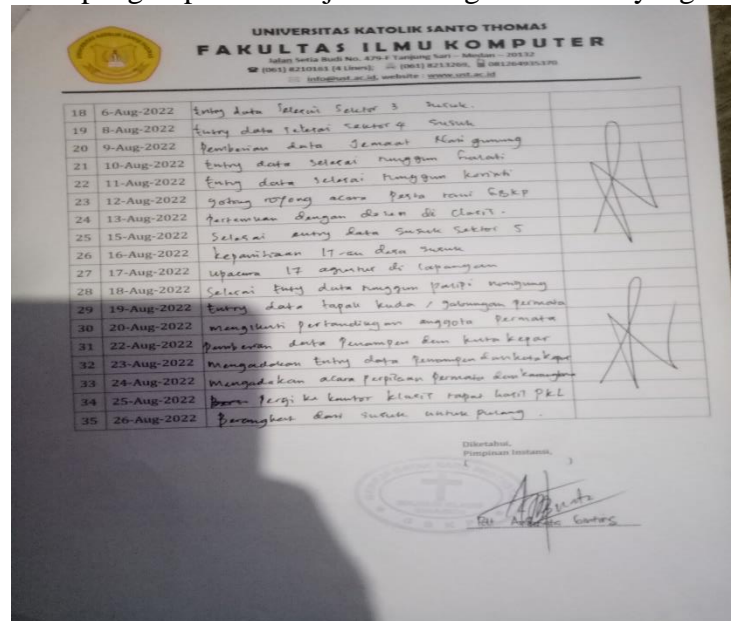 UNIVERSITAS KATOLIK SANTO THOMAS
FAKULTAS ILMU KOMPUTER
Jalan Setia Budi No. 479-F Tanjung Sari – Medan – 20132
(061) 8210161 (4 Lines); (061) 8213269, 081264935370
info@ust.ac.id, website : www.ust.ac.id
18 6-Aug-2022 Entry data Selesai Sektor 3 susuk.
19 8-Aug-2022 Entry data selesai sektor 4 susuk
20 9-Aug-2022 Pemberian data Jemaat gunung
21 10-Aug-2022 Entry data selesai runggun Galati
22 11-Aug-2022 Entry data selesai runggun korinti
23 12-Aug-2022 gotong royong acara pesta GBKP
24 13-Aug-2022 Pertemuan dengan dosen di Clasis.
25 15-Aug-2022 Selesai entry data Susuk Sektor 5
26 16-Aug-2022 kepanitiaan 17-an desa susuk
27 17-Aug-2022 Upacara 17 agustus di lapangan
28 18-Aug-2022 Selesai Entry data runggun
29 19-Aug-2022 Entry data tapak kuda / gabungan Permata
30 20-Aug-2022 mengikuti pertandingan anggota Permata
31 22-Aug-2022 Pemberian data Penampen dan kuta kepar
32 23-Aug-2022 Mengadakan Entry data Penampen dan kuta kepar
33 24-Aug-2022 Mengadakan acara perpisahan Permata dan
34 25-Aug-2022 Pergi ke kantor klasis rapat hasil PKL
35 26-Aug-2022 Berangkat dari susuk untuk pulang.
Diketahui,
Pimpinan Instansi,
( )